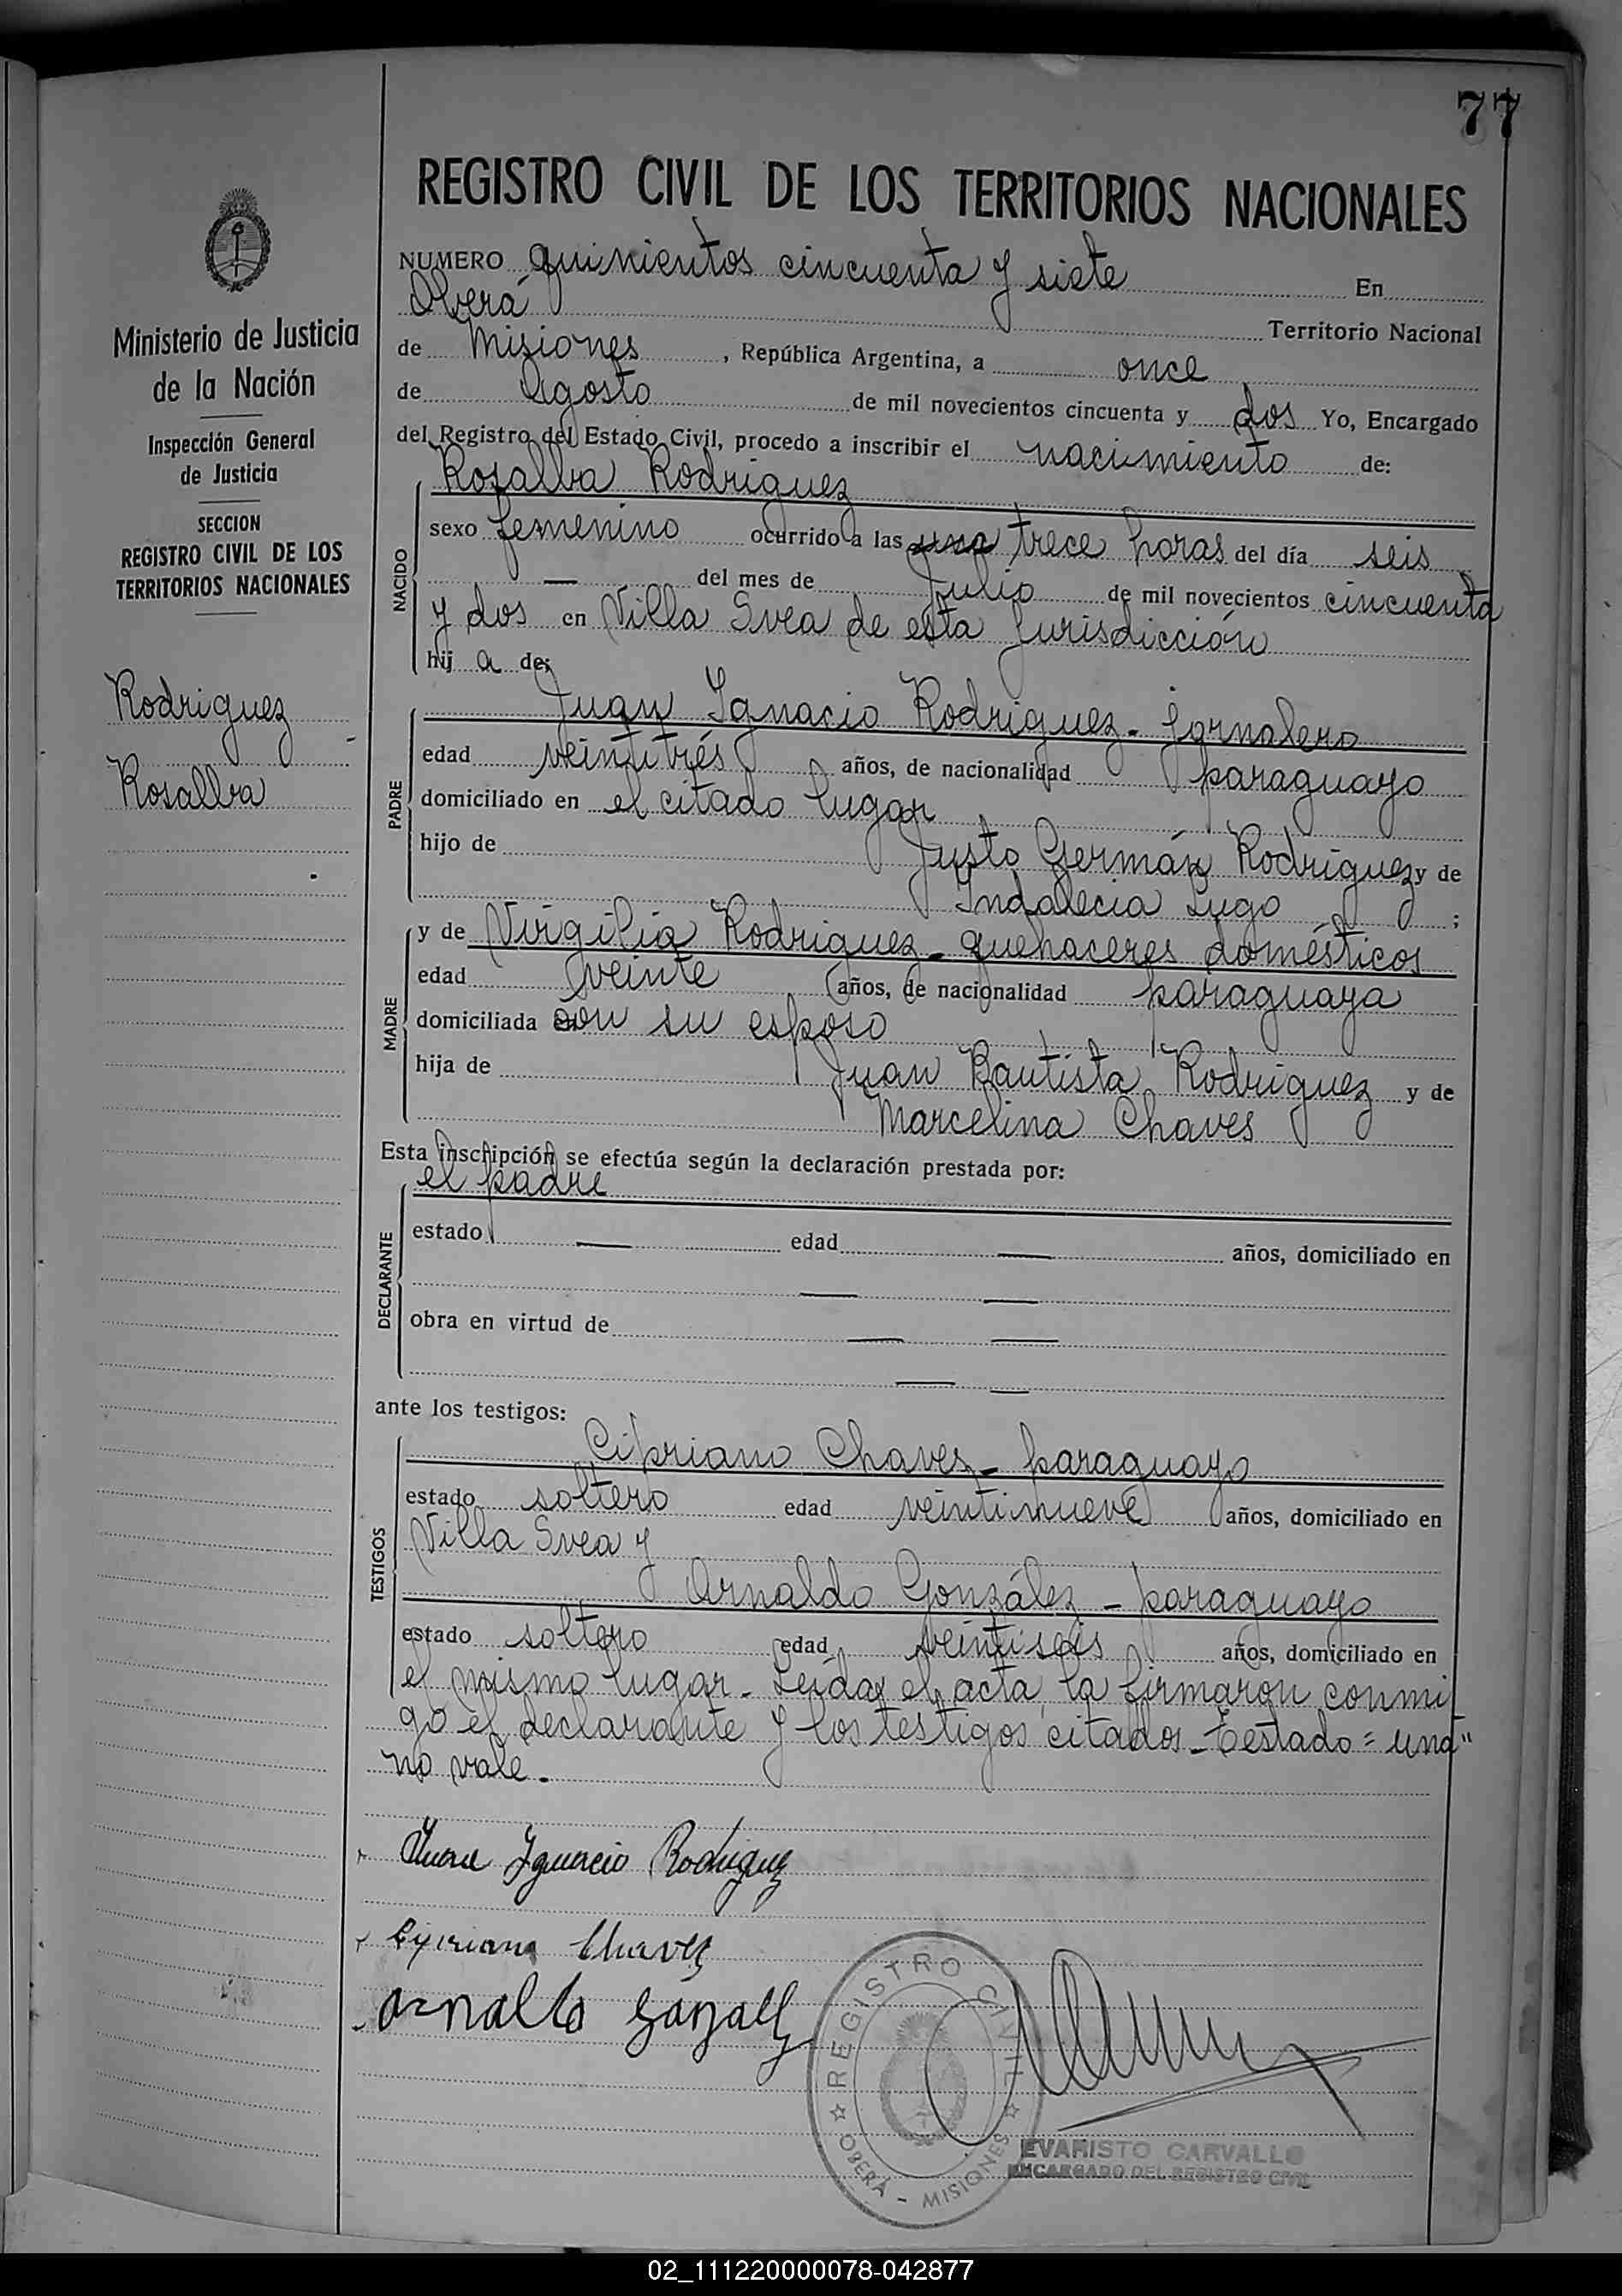 77
REGISTRO CIVIL DE LOS TERRITORIOS NACIONALES
Ministerio de Justicia
de la Nación
Inspección General
de Justicia
SECCION
REGISTRO CIVIL DE LOS
TERRITORIOS NACIONALES
Rodriguez
Rosalba
NUMERO quinientos cincuenta y siete En
Oberá Territorio Nacional
de Misiones, República Argentina, a once
de Agosto de mil novecientos cincuenta y dos Yo, Encargado
del Registro del Estado Civil, procedo a inscribir el nacimiento de:
NACIDO
Rosalba Rodriguez
sexo femenino ocurrido a las una trece horas del día seis
— del mes de Julio de mil novecientos cincuenta
y dos en Villa Svea de esta Jurisdicción
hij a de:
PADRE
Juan Ignacio Rodriguez - Jornalero
edad veintitrés años, de nacionalidad paraguayo
domiciliado en el citado lugar
hijo de Justo Germán Rodriguez y de
Indalecia Lugo ;
MADRE
y de Virgilia Rodriguez - quehaceres domésticos
edad veinte años, de nacionalidad paraguaya
domiciliada con su esposo
hija de Juan Bautista Rodriguez y de
Marcelina Chaves
Esta inscripción se efectúa según la declaración prestada por:
DECLARANTE
el padre
estado — edad — años, domiciliado en
— —
obra en virtud de — —
— —
ante los testigos:
TESTIGOS
Cipriano Chavez - paraguayo
estado soltero edad veintinueve años, domiciliado en
Villa Svea y
Arnaldo González - paraguayo
estado soltero edad veintiseis años, domiciliado en
el mismo lugar. Leída el acta la firmaron conmi
go el declarante y los testigos citados - Testado = una"
no vale.
Juan Ignacio Rodriguez
Cipriano Chavez
Arnaldo Gonzalez
REGISTRO CIVIL
OBERÁ - MISIONES
EVARISTO CARVALLO
ENCARGADO DEL REGISTRO CIVIL
02_111220000078-042877